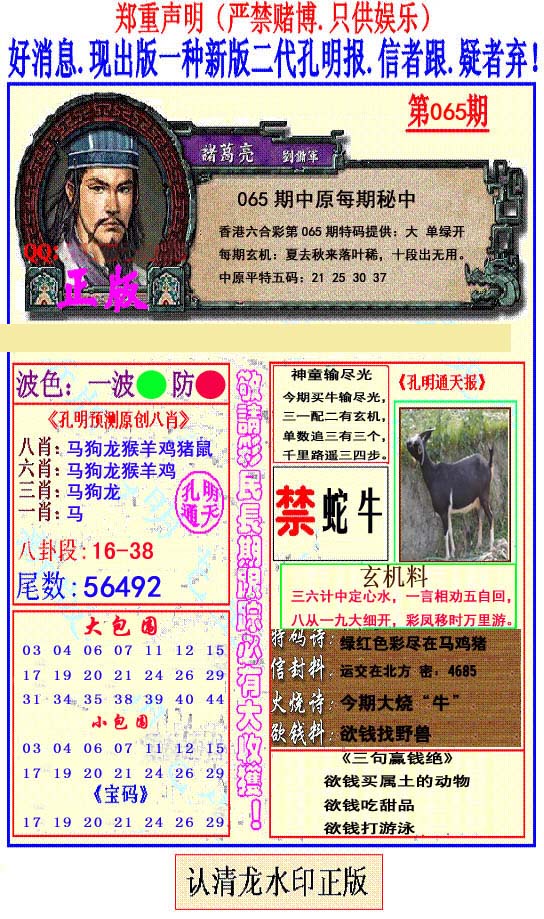 郑重声明（严禁赌博.只供娱乐）
好消息.现出版一种新版二代孔明报.信者跟.疑者弃!
第065期
諸葛亮 劉備軍
065 期中原每期秘中
香港六合彩第 065 期特码提供：大 单绿开
每期玄机：夏去秋来落叶稀，十段出无用。
中原平特五码：21 25 30 37
QQ:
正版
波色：一波 防
《孔明预测原创八肖》
八肖：马狗龙猴羊鸡猪鼠
六肖：马狗龙猴羊鸡
三肖：马狗龙
一肖：马
孔明
通天
八卦段：16-38
尾数：56492
大包围
03 04 06 07 11 12 15
17 19 20 21 24 26 29
31 34 35 38 39 40 44
小包围
03 04 06 07 11 12 15
17 19 20 21 24 26 29
《宝码》
17 19 20 21 24 26 29
敬請彩民長期跟踪必有大收獲！
神童输尽光
今期买牛输尽光，
三一配二有玄机，
单数追三有三个，
千里路遥三四步。
《孔明通天报》
禁 蛇牛
玄机料
三六计中定心水，一言相劝五自回，
八从一九大细开，彩凤移时万里游。
特码诗：绿红色彩尽在马鸡猪
信封料：运交在北方 密：4685
火烧诗：今期大烧“牛”
欲钱料：欲钱找野兽
《三句赢钱绝》
欲钱买属土的动物
欲钱吃甜品
欲钱打游泳
认清龙水印正版